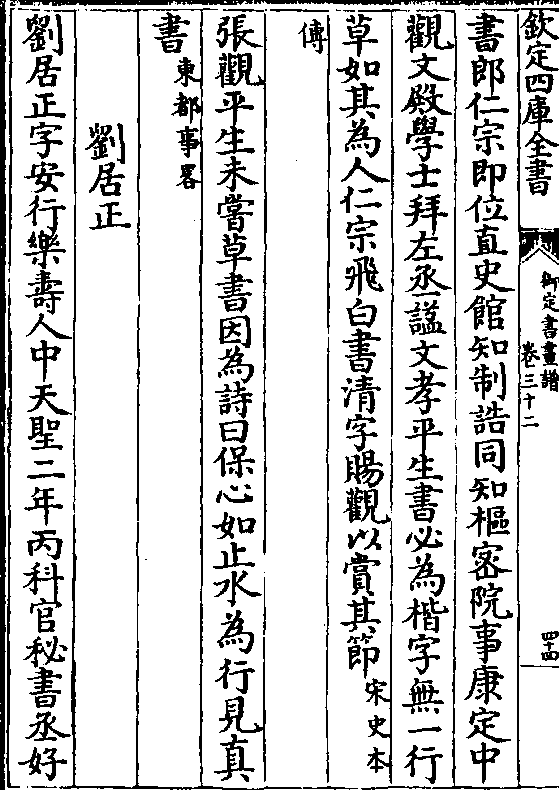 欽定四庫全書
御定書畫譜
卷三十二
四十四
書郎仁宗即位直史館知制誥同知樞密院事康定中
觀文殿學士拜左丞諡文孝平生書必為楷字無一行
草如其為人仁宗飛白書清字賜觀以賞其節宋史本
傳
張觀平生未嘗草書因為詩曰保心如止水為行見真
書東都事畧
劉居正
劉居正字安行樂壽人中天聖二年丙科官秘書丞好